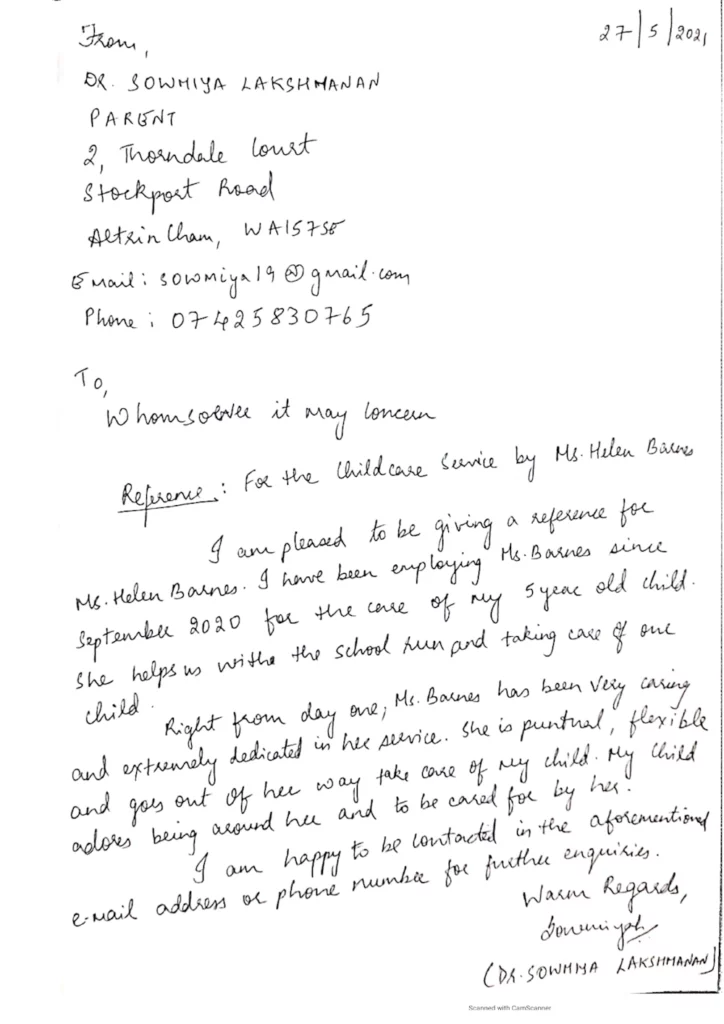 27/5/2021
From,
DR. SOWMIYA LAKSHMANAN
PARENT
2, Thorndale Court
Stockport Road
Altrin Cham, WA157SE
Email: sowmiya19@gmail.com
Phone: 07425830765
To,
Whomsoever it may Concern
Reference: For the Childcare Service by Ms. Helen Barnes
I am pleased to be giving a reference for
Ms. Helen Barnes. I have been employing Ms. Barnes since
September 2020 for the care of my 5 year old child.
She helps us withe the school run and taking care of our
child.
Right from day one, Ms. Barnes has been very caring
and extremely dedicated in her service. She is puntual, flexible
and goes out of her way take care of my child. My child
adores being around her and to be cared for by her.
I am happy to be contacted in the aforementioned
e-mail address or phone number for further enquiries.
Warm Regards,
Sowmiyah
(DR. SOWMIYA LAKSHMANAN)
Scanned with CamScanner